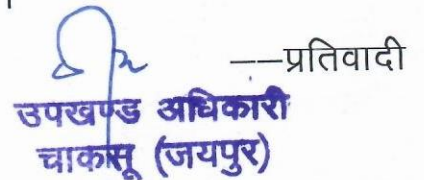 ——प्रतिवादी
उपखण्ड अधिकारी
चाकसू (जयपुर)